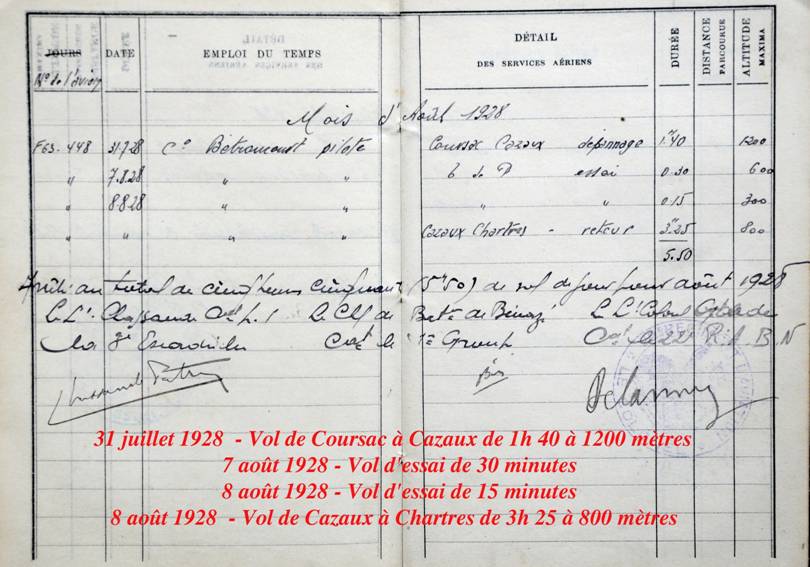 JOURS DATE EMPLOI DU TEMPS DÉTAIL DES SERVICES AÉRIENS DURÉE DISTANCE PARCOURUE ALTITUDE MAXIMA
N° de l'avion
Mois d'Août 1928
F63-448 31.7.28 Bétrancourt pilote Coursac Cazaux dépannage 1h40 1200
" 7.8.28 " " T de P essai 0.30 600
" 8-8-28 " " " " 0.15 300
" " " " Cazaux Chartres - retour 3h25 800
5.50
Arrêté au total de cinq heures cinquante (5h50) de vol de jour pour août 1928
Le Lt Le Chef de Bat. de Le Lt Colonel
la 8e Escadrille Cdt le Groupe Cdt le R. A. B. N
Delannoy
31 juillet 1928 - Vol de Coursac à Cazaux de 1h 40 à 1200 mètres
7 août 1928 - Vol d'essai de 30 minutes
8 août 1928 - Vol d'essai de 15 minutes
8 août 1928 - Vol de Cazaux à Chartres de 3h 25 à 800 mètres